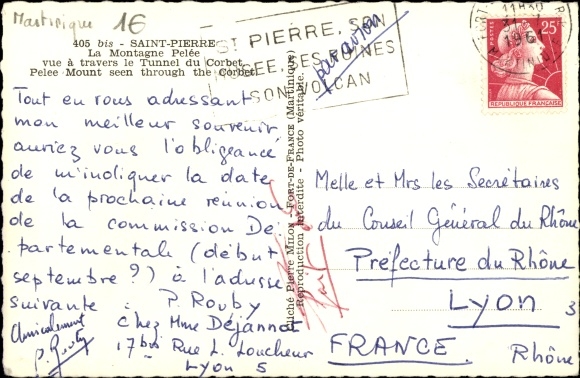 Martinique 16
405 bis - SAINT-PIERRE
La Montagne Pelée
vue à travers le Tunnel du Corbet
Pelee Mount seen through the Corbet
ST PIERRE, SON
MUSÉE, SES RUINES
SON VOLCAN
par avion
11H30
196
25F
POSTES
REPUBLIQUE FRANÇAISE
Tout en vous adressant
mon meilleur souvenir
auriez vous l'obligeance
de m'indiquer la date
de la prochaine réunion
de la commission Dé-
partementale (début
septembre ?) à l'adresse
suivante : P. Rouby
Chez Mme Déjannot
17 bis Rue L. Loucheur
Lyon 5
Amicalement
P. Rouby
Cliché Pierre MILON - FORT-DE-FRANCE (Martinique)
Reproduction interdite - Photo véritable.
Melle et Mrs les Secrétaires
du Conseil Général du Rhône
Préfecture du Rhône
Lyon 3
FRANCE. Rhône